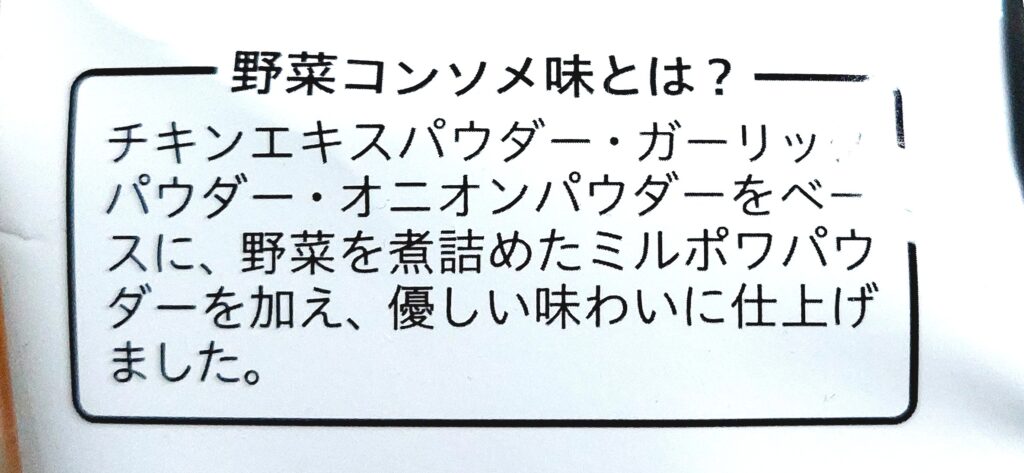 野菜コンソメ味とは？
チキンエキスパウダー・ガーリッ
パウダー・オニオンパウダーをベー
スに、野菜を煮詰めたミルポワパウ
ダーを加え、優しい味わいに仕上げ
ました。